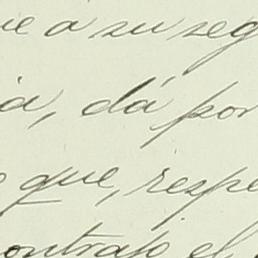 ue a su seg
ia, dá por
que, respe
ontrato el